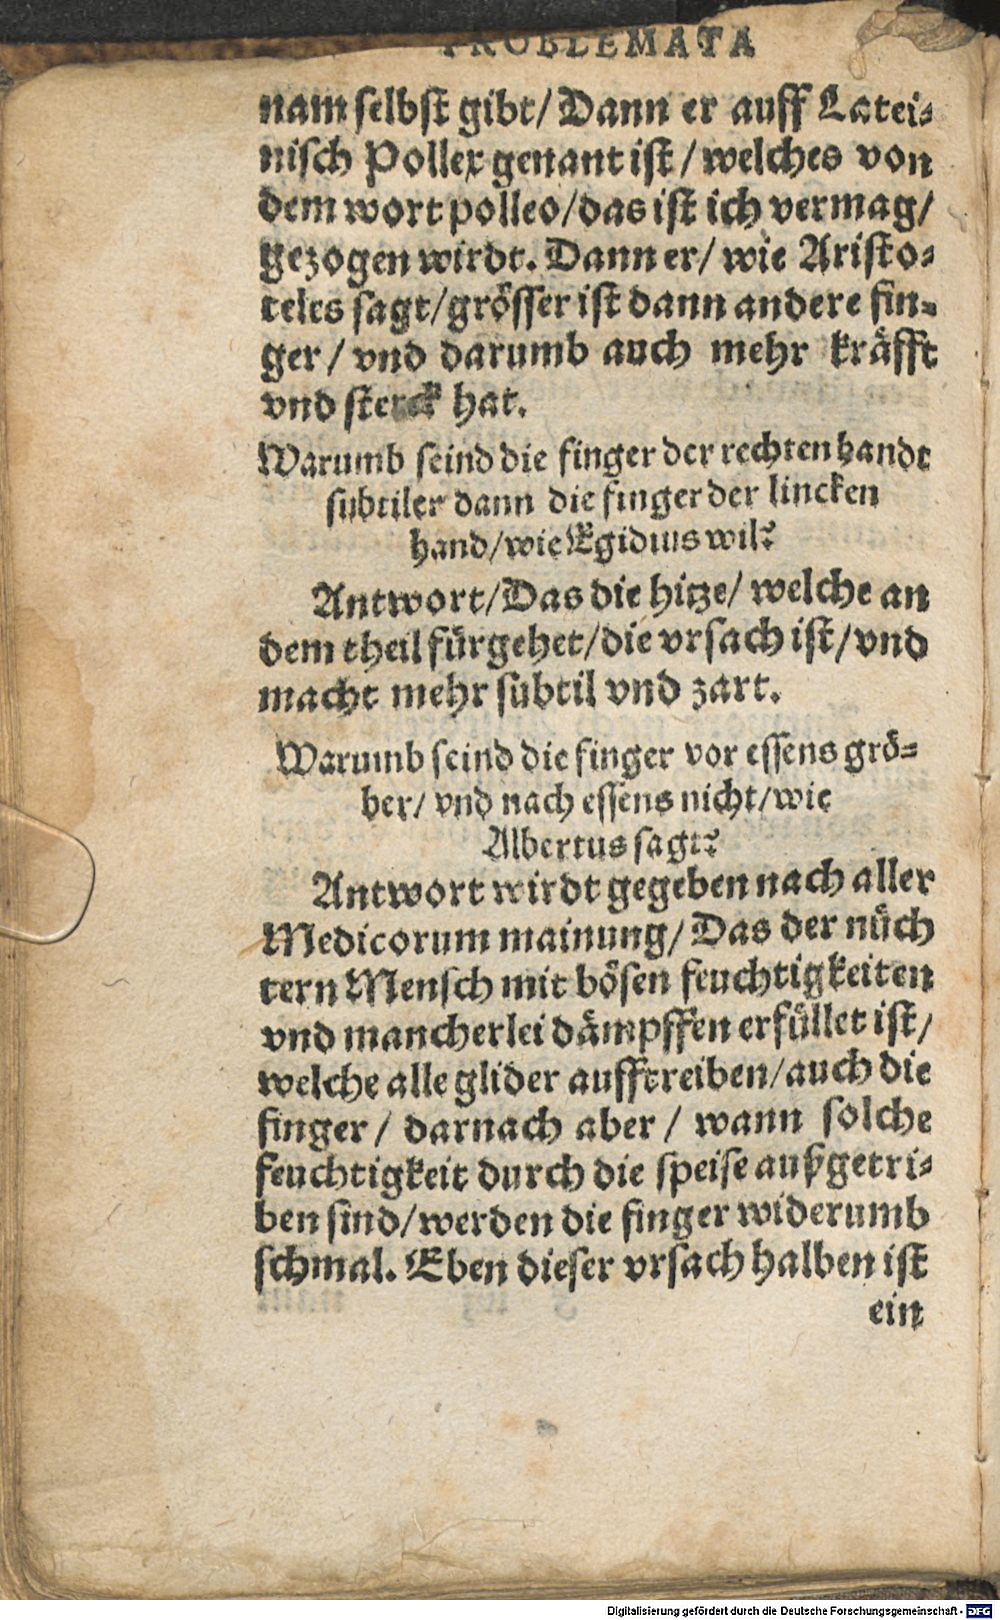 PROBLEMATA
nam selbst gibt/ Dann er auff Latei⸗
nisch Pollex genant ist / welches von
dem wort polleo/das ist ich vermag/
gezogen wirdt. Dann er/ wie Aristo⸗
teles sagt/grösser ist dann andere fin⸗
ger / vnd darumb auch mehr kräfft
vnd sterck hat.
Warumb seind die finger der rechten handt
subtiler dann die finger der lincken
hand/wie Egidius wil?
Antwort/Das die hitze/ welche an
dem theil fürgehet/die vrsach ist/vnd
macht mehr subtil vnd zart.
Warumb seind die finger vor essens grö⸗
ber/ vnd nach essens nicht/wie
Albertus sagt?
Antwort wirdt gegeben nach aller
Medicorum mainung/ Das der nüch
tern Mensch mit bösen feuchtigkeiten
vnd mancherlei dämpffen erfüllet ist/
welche alle glider aufftreiben/auch die
finger/ darnach aber / wann solche
feuchtigkeit durch die speise außgetri⸗
ben sind/werden die finger widerumb
schmal. Eben dieser vrsach halben ist
ein
Digitalisierung gefördert durch die Deutsche Forschungsgemeinschaft - DFG